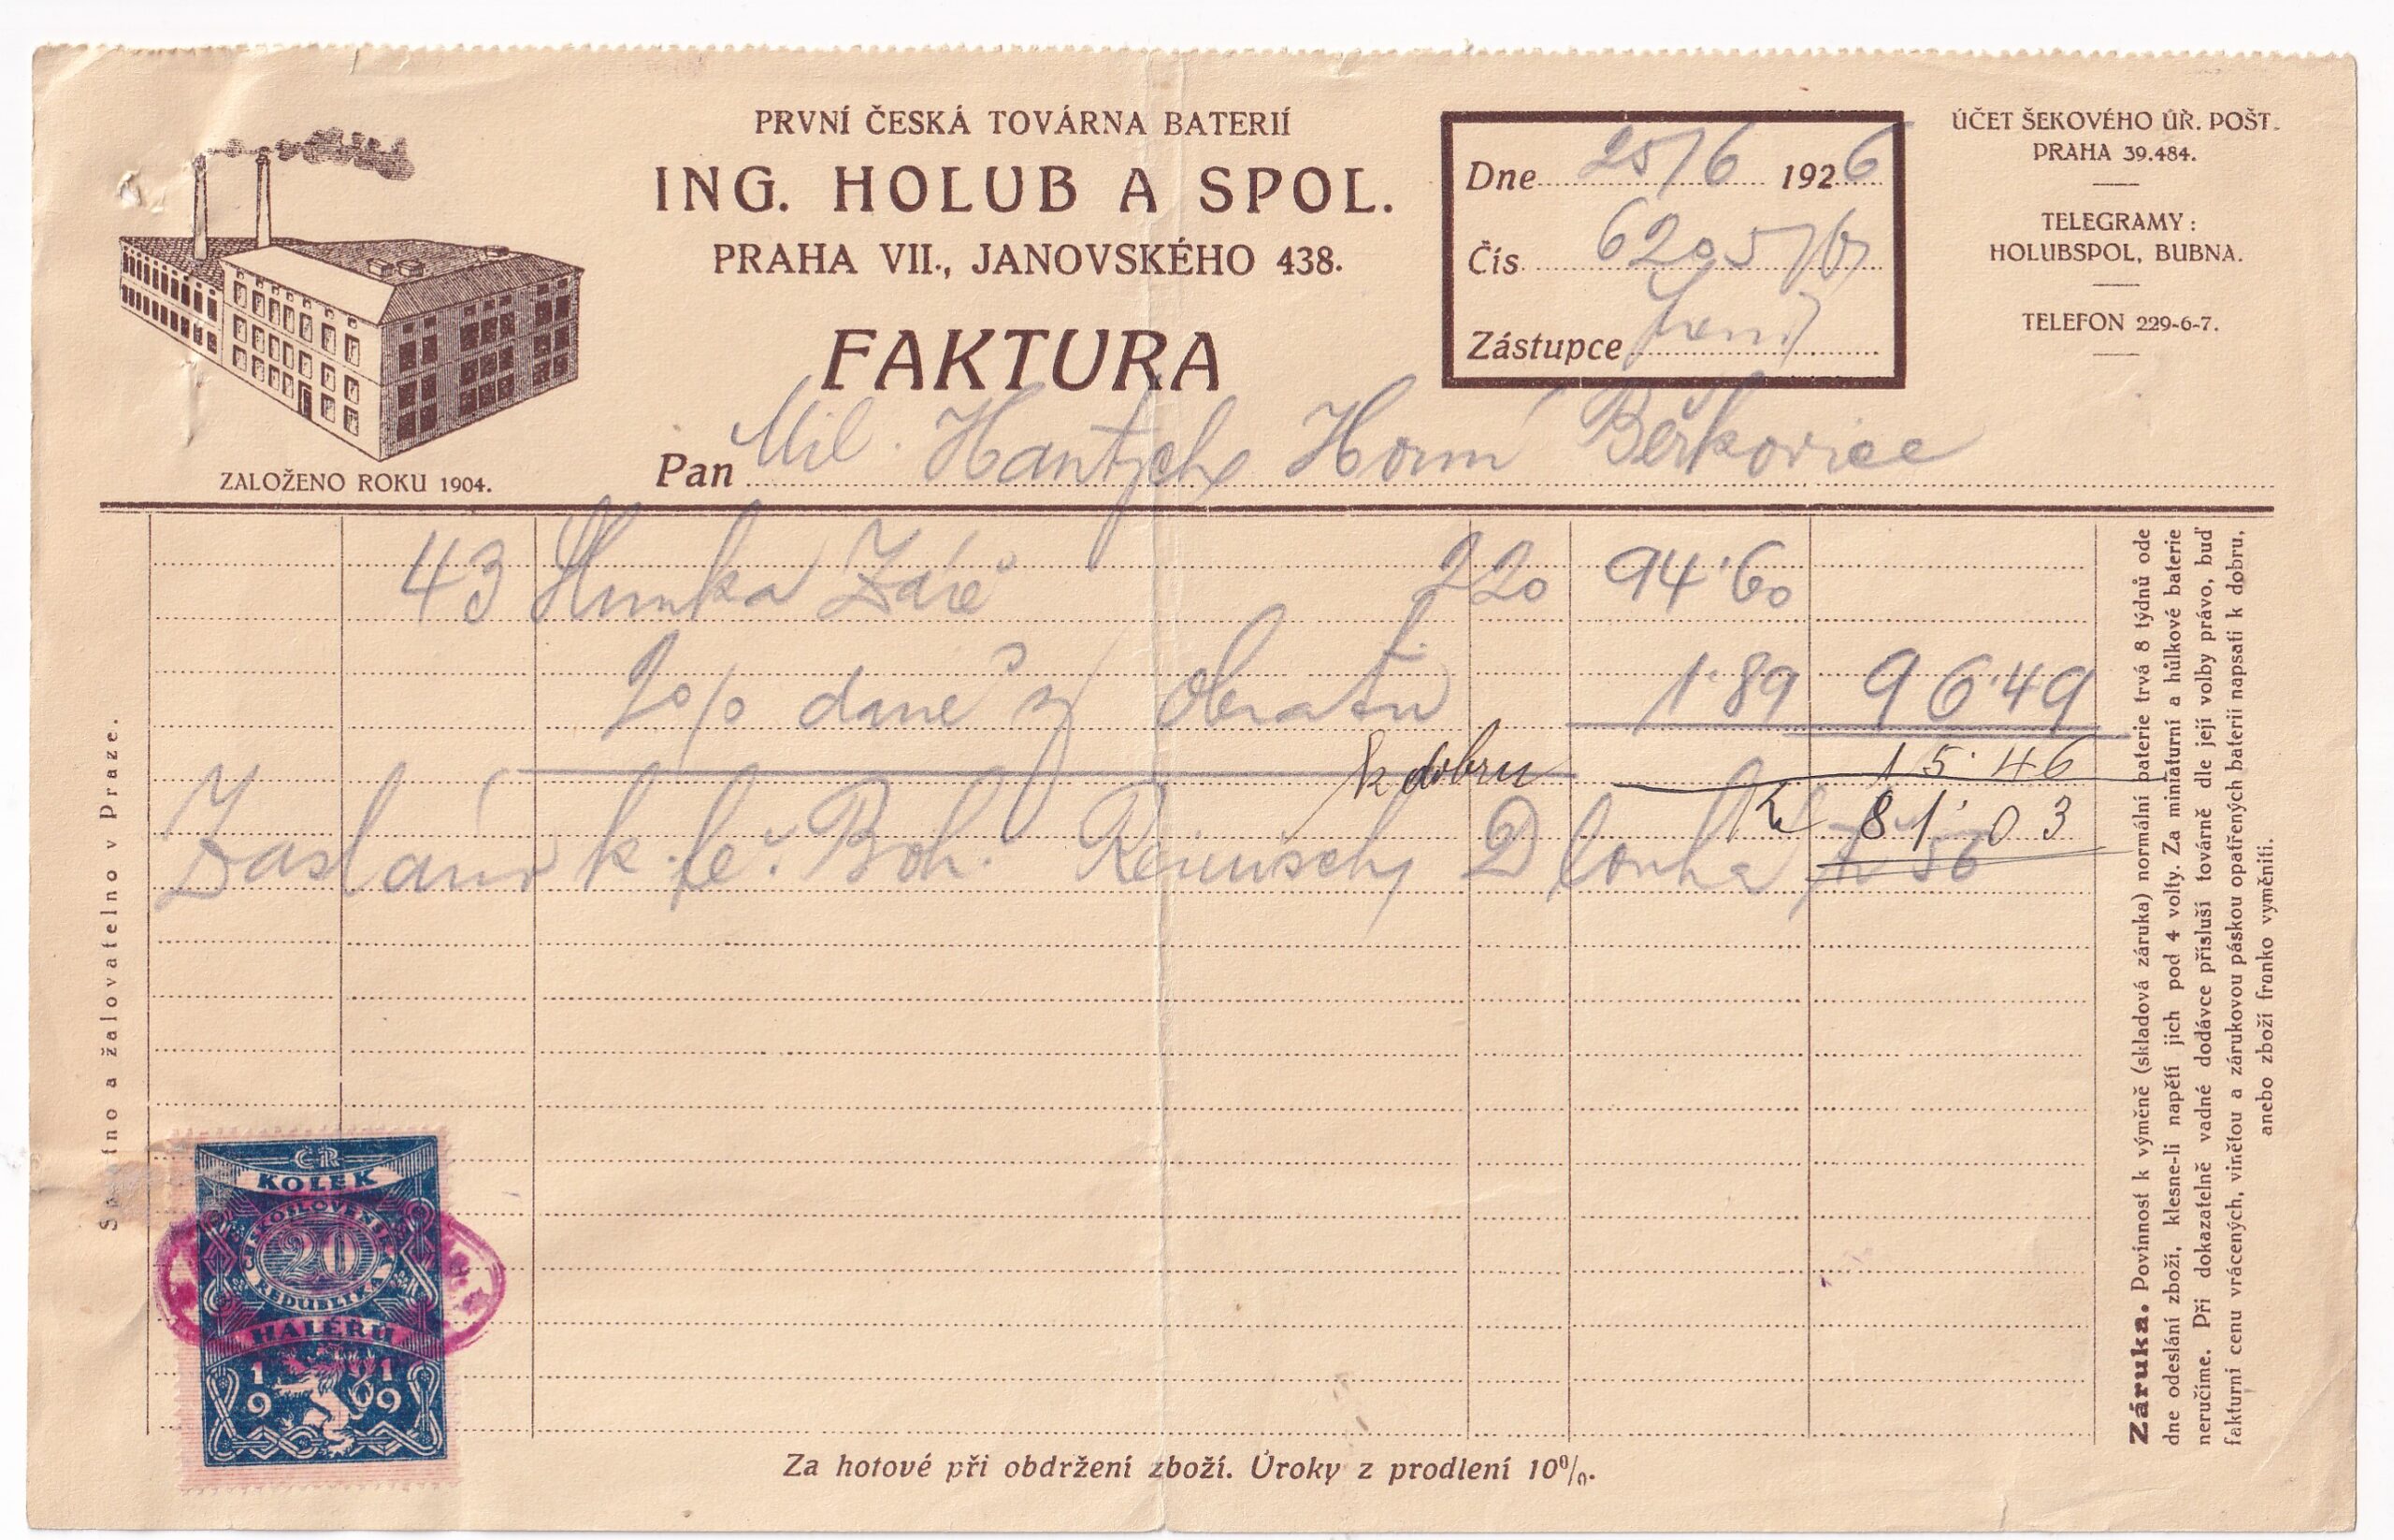 PRVNÍ ČESKÁ TOVÁRNA BATERIÍ
ING. HOLUB A SPOL.
PRAHA VII., JANOVSKÉHO 438.
FAKTURA
ZALOŽENO ROKU 1904.
Dne 25/6 1926
Čís. 6205/6
Zástupce
ÚČET ŠEKOVÉHO ÚŘ. POŠT.
PRAHA 39.484.
TELEGRAMY:
HOLUBSPOL, BUBNA.
TELEFON 229-6-7.
Pan Mil. Hantych Horní Beřkovice
43 Slunka Záře 220 94·60
2% daně z obratu 1·89 96·49
k dobru 15·46
Kč 81·03
Zasláno k fě. Boh. Dlouhá tř 56
Splatno a žalovatelno v Praze.
ČR
KOLEK
ČESKOSLOVENSKÁ
20
REPUBLIKA
HALÉŘŮ
1919
Záruka. Povinnost k výměně (skladová záruka) normální baterie trvá 8 týdnů ode
dne odeslání zboží, klesne-li napětí jich pod 4 volty. Za miniaturní a hůlkové baterie
neručíme. Při dokazatelně vadné dodávce přísluší továrně dle její volby právo, buď
fakturní cenu vrácených, vinětou a zárukovou páskou opatřených baterií napsati k dobru,
anebo zboží franko vyměniti.
Za hotové při obdržení zboží. Úroky z prodlení 10%.